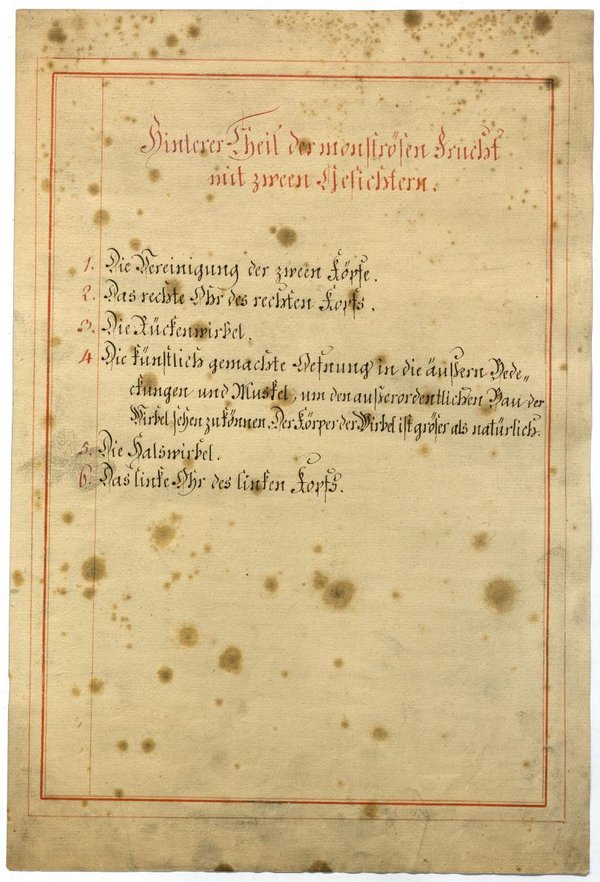 Hinterer Theil der monströsen Frucht
mit zween Gesichtern.
1. Die Vereinigung der zween Köpfe.
2. Das rechte Ohr des rechten Kopfs.
3. Die Rückenwirbel.
4 Die künstlich gemachte Oefnung in die äußern Bede„
ckungen und Muskel, um den außerordentlichen Bau der
Wirbel sehen zu können. Der Körper der Wirbel ist gröser als natürlich.
5. Die Halswirbel.
6. Das linke Ohr des linken Kopfs.